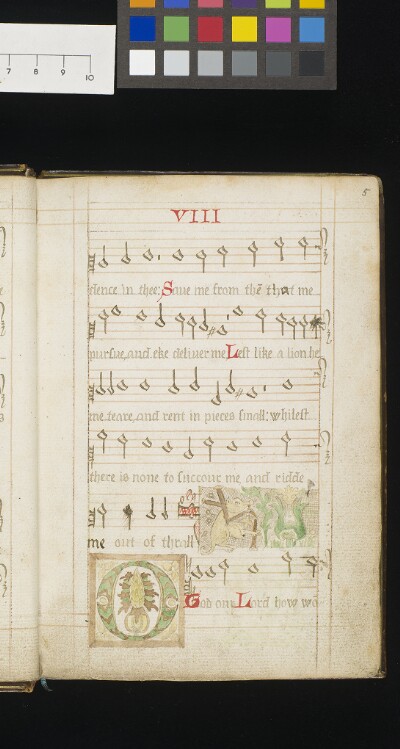 7 8 9 10
5
VIII
dence in thee: Saue me from thē that me
pursue, and eke deliver me Lest like a lion he
me teare, and rent in pieces small: whilest
there is none to succour me, and ridde
me out of thrall
O God our Lord how wō